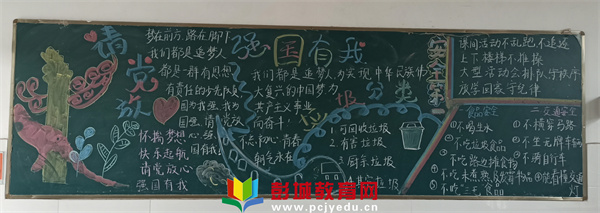 请党放心
强国有我
梦在前方,路在脚下
我们都是追梦人
都是一群有思想
有责任的少先队员
国强
怀揣梦想
快乐起航
请党放心
强国有我
我们都是追梦人,为实现中华民族伟
大复兴的中国梦为
共产主义事业
而奋斗!
垃圾分类
1.可回收垃圾
2.有害垃圾
3.厨余垃圾
4.其它垃圾
安全第一
课间活动不乱跑不追逐
上下楼梯不推搡
大型活动会排队守秩序
放学回家守纪律
一.食品安全
①不喝生水
②不吃垃圾食品
③不吃路边摊食物
④不吃未煮熟
⑤不吃"三无"食品
二.交通安全
①不横穿马路
②不坐无牌车辆
③不骑自行车
④看懂交通
灯
彭城教育网
www.pcjyedu.cn